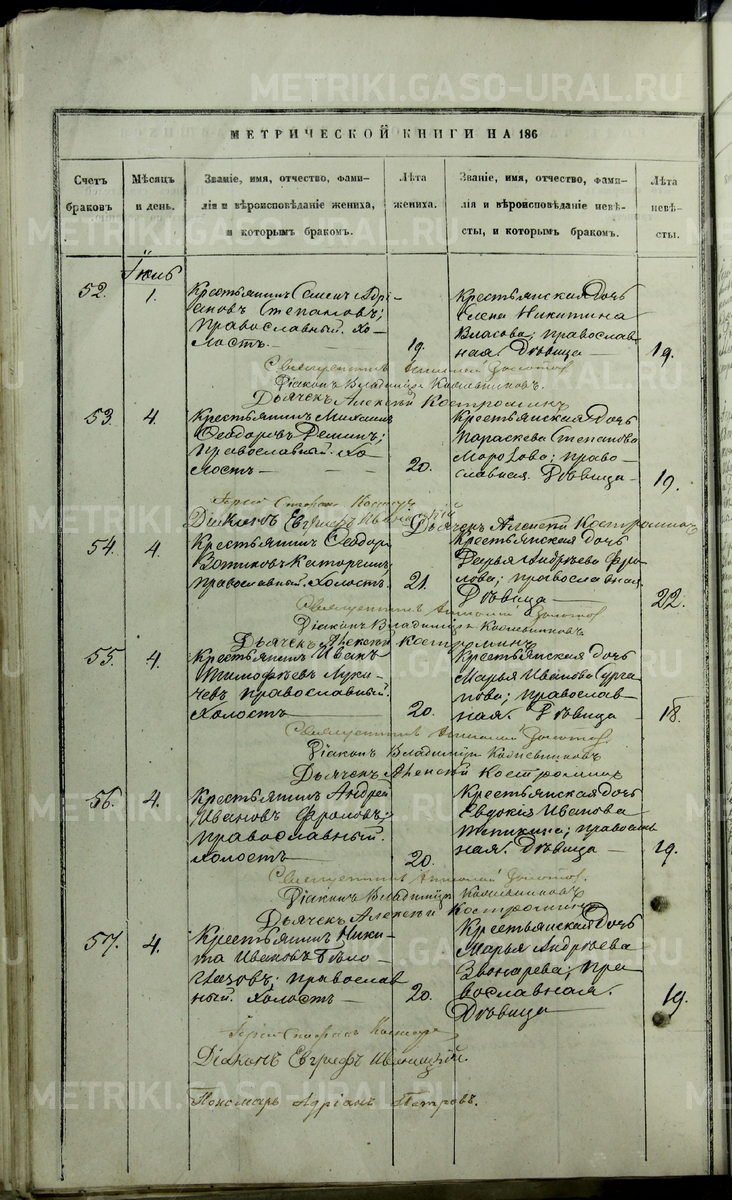 МЕТРИЧЕСКОЙ КНИГИ НА 186
Счетъ браковъ.
Мѣсяцъ и день.
Званіе, имя, отчество, фами-
лія и вѣроисповѣданіе жениха,
и которымъ бракомъ.
Лѣта жениха.
Званіе, имя, отчество, фами-
лія и вѣроисповѣданіе невѣ-
сты, и которымъ бракомъ.
Лѣта невѣ-
сты.
Іюль
52.
1.
Крестьянинъ Семенъ Адрі-
ановъ Степановъ;
православный. Хо-
лостъ.
19.
Крестьянская дочь
Елена Никитина
Власова; православ-
ная. Дѣвица
19.
Священникъ Золотов
Діаконъ Владиміръ
Дьячекъ Алексѣй Костроминъ
53.
4.
Крестьянинъ Михаилъ
Феодоровъ Деминъ;
Православный. Хо-
лостъ
20.
Крестьянская дочь
Параскева Степанова
Морозова; право-
славная. Дѣвица
19.
Іерей Стефан
Діаконъ Евграфъ Иваницкій
Дьячекъ Алексѣй Костроминъ
54.
4.
Крестьянинъ Феодоръ
православный. Холостъ
21.
Крестьянская дочь
Дарья Андрѣева Фро-
лова; православная
Дѣвица
22.
Священникъ Золотов
Діаконъ Владиміръ
Дьячекъ Алексѣй Костроминъ
55.
4.
Крестьянинъ Иванъ
Тимофѣевъ Лука-
чевъ православный.
Холостъ
20.
Крестьянская дочь
Марья Иванова Сурга-
нова; православ-
ная. Дѣвица
18.
Священникъ Золотов
Діаконъ Владиміръ
Дьячекъ Алексѣй Костроминъ
56.
4.
Крестьянинъ Андрей
Ивановъ Фроловъ;
православный.
Холостъ
20.
Крестьянская дочь
Евдокія Иванова
православ-
ная. Дѣвица
19.
Священникъ Золотов
Діаконъ Владиміръ
Дьячекъ Алексѣй Костроминъ
57.
4.
Крестьянинъ Ники-
та Ивановъ Бѣло-
глазовъ; православ
ный. Холостъ
20.
Крестьянская дочь
Марья Андрѣева
Звонарева; пра-
вославная.
Дѣвица
19.
Іерей Стефан
Діаконъ Евграфъ Иваницкій.
Пономарь Адріанъ Петровъ.
METRIKI.GASO-URAL.RU